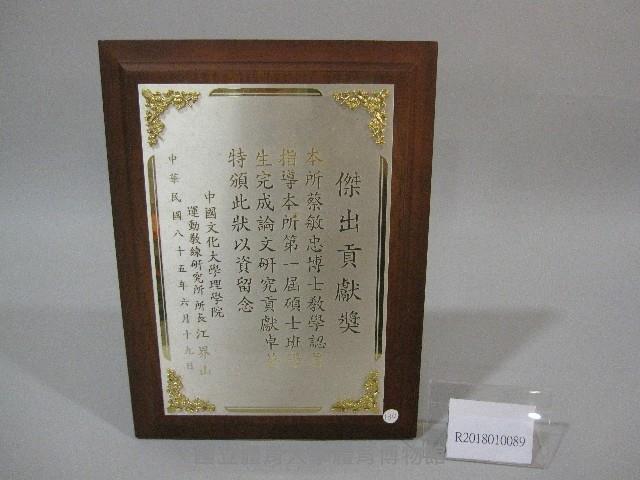 傑出貢獻獎
本所蔡敏忠博士教學認真
指導本所第一屆碩士班學
生完成論文研究貢獻卓著
特頒此狀以資留念
中國文化大學理學院
運動教練研究所 所長 江界山
中華民國八十五年六月十九日
R2018010089
國立體育大學體育博物館